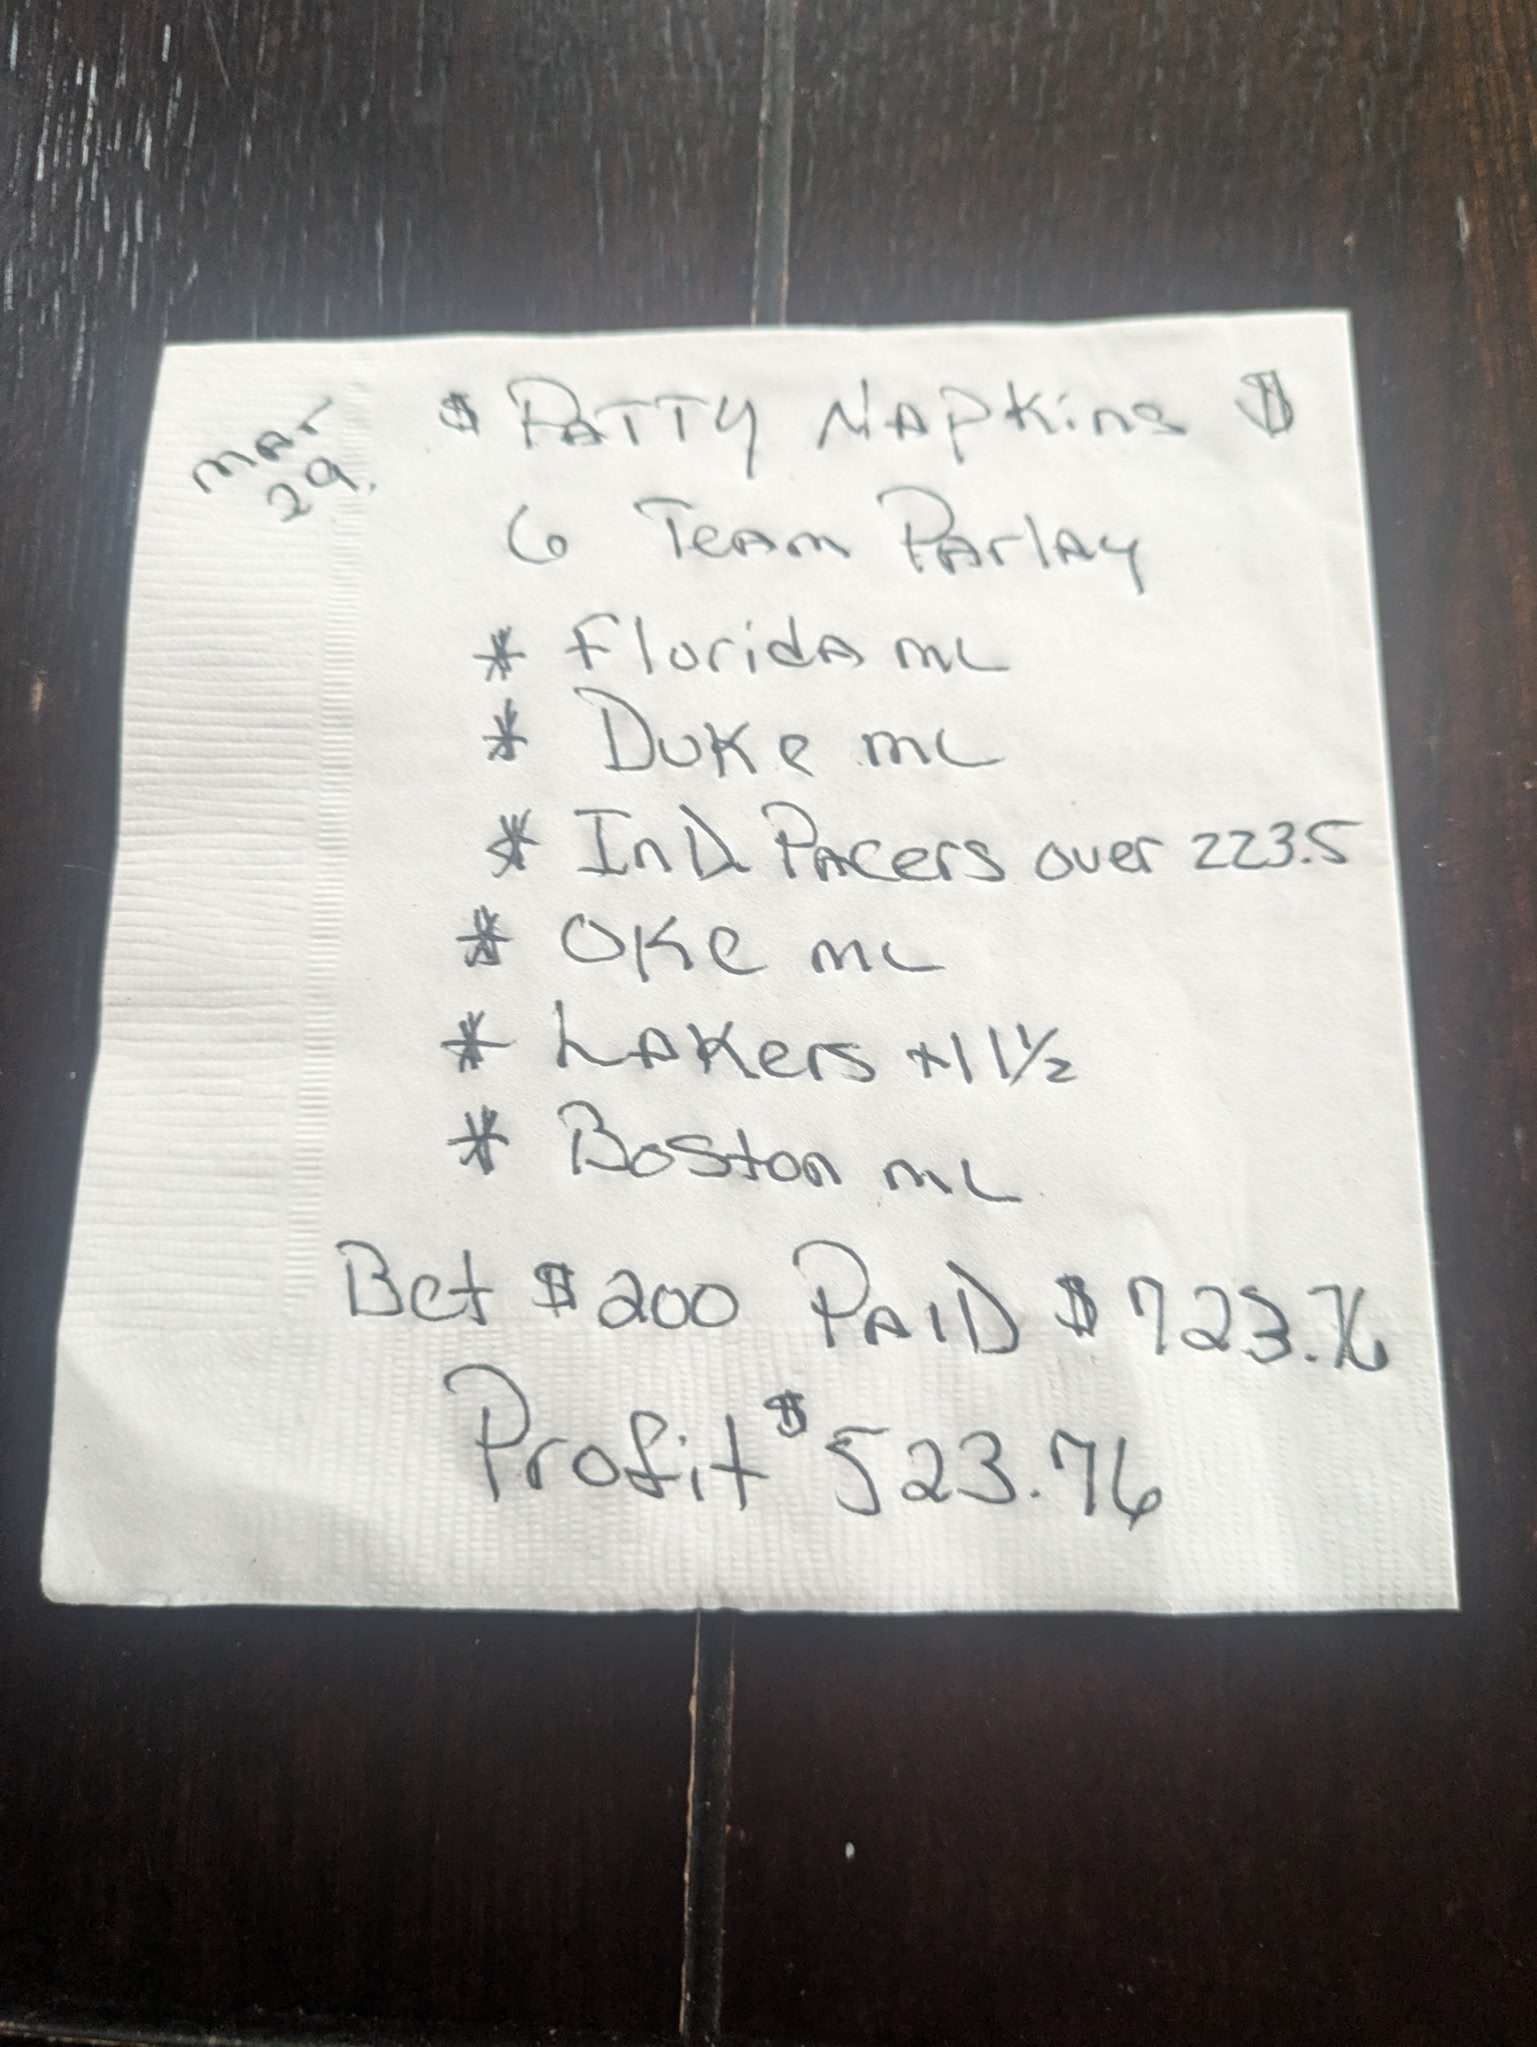 Mar
29.
$ Patty Napkins $
6 Team Parlay
* Florida ML
* Duke ML
* Ind Pacers over 223.5
* OKC ML
* Lakers +11½
* Boston ML
Bet $200 Paid $723.76
Profit $523.76